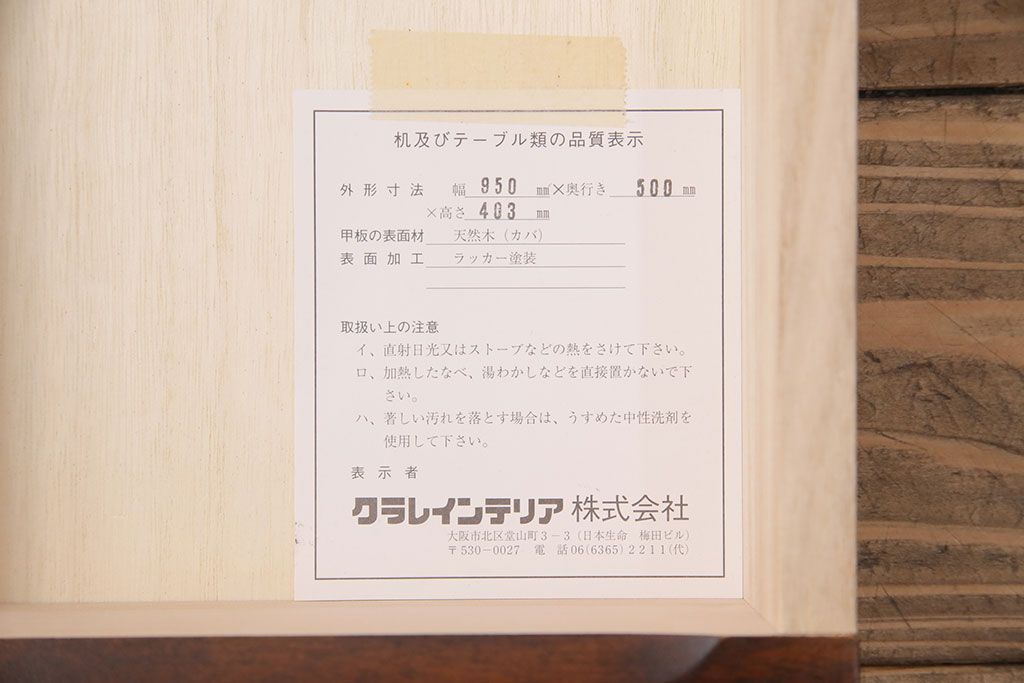 机及びテーブル類の品質表示
外形寸法 幅 950 mm×奥行き 500 mm
×高さ 403 mm
甲板の表面材 天然木(カバ)
表面加工 ラッカー塗装
取扱い上の注意
イ、直射日光又はストーブなどの熱をさけて下さい。
ロ、加熱したなべ、湯わかしなどを直接置かないで下
さい。
ハ、著しい汚れを落とす場合は、うすめた中性洗剤を
使用して下さい。
表示者
クラレインテリア株式会社
大阪市北区堂山町3-3(日本生命 梅田ビル)
〒530-0027 電話06(6365)2211(代)